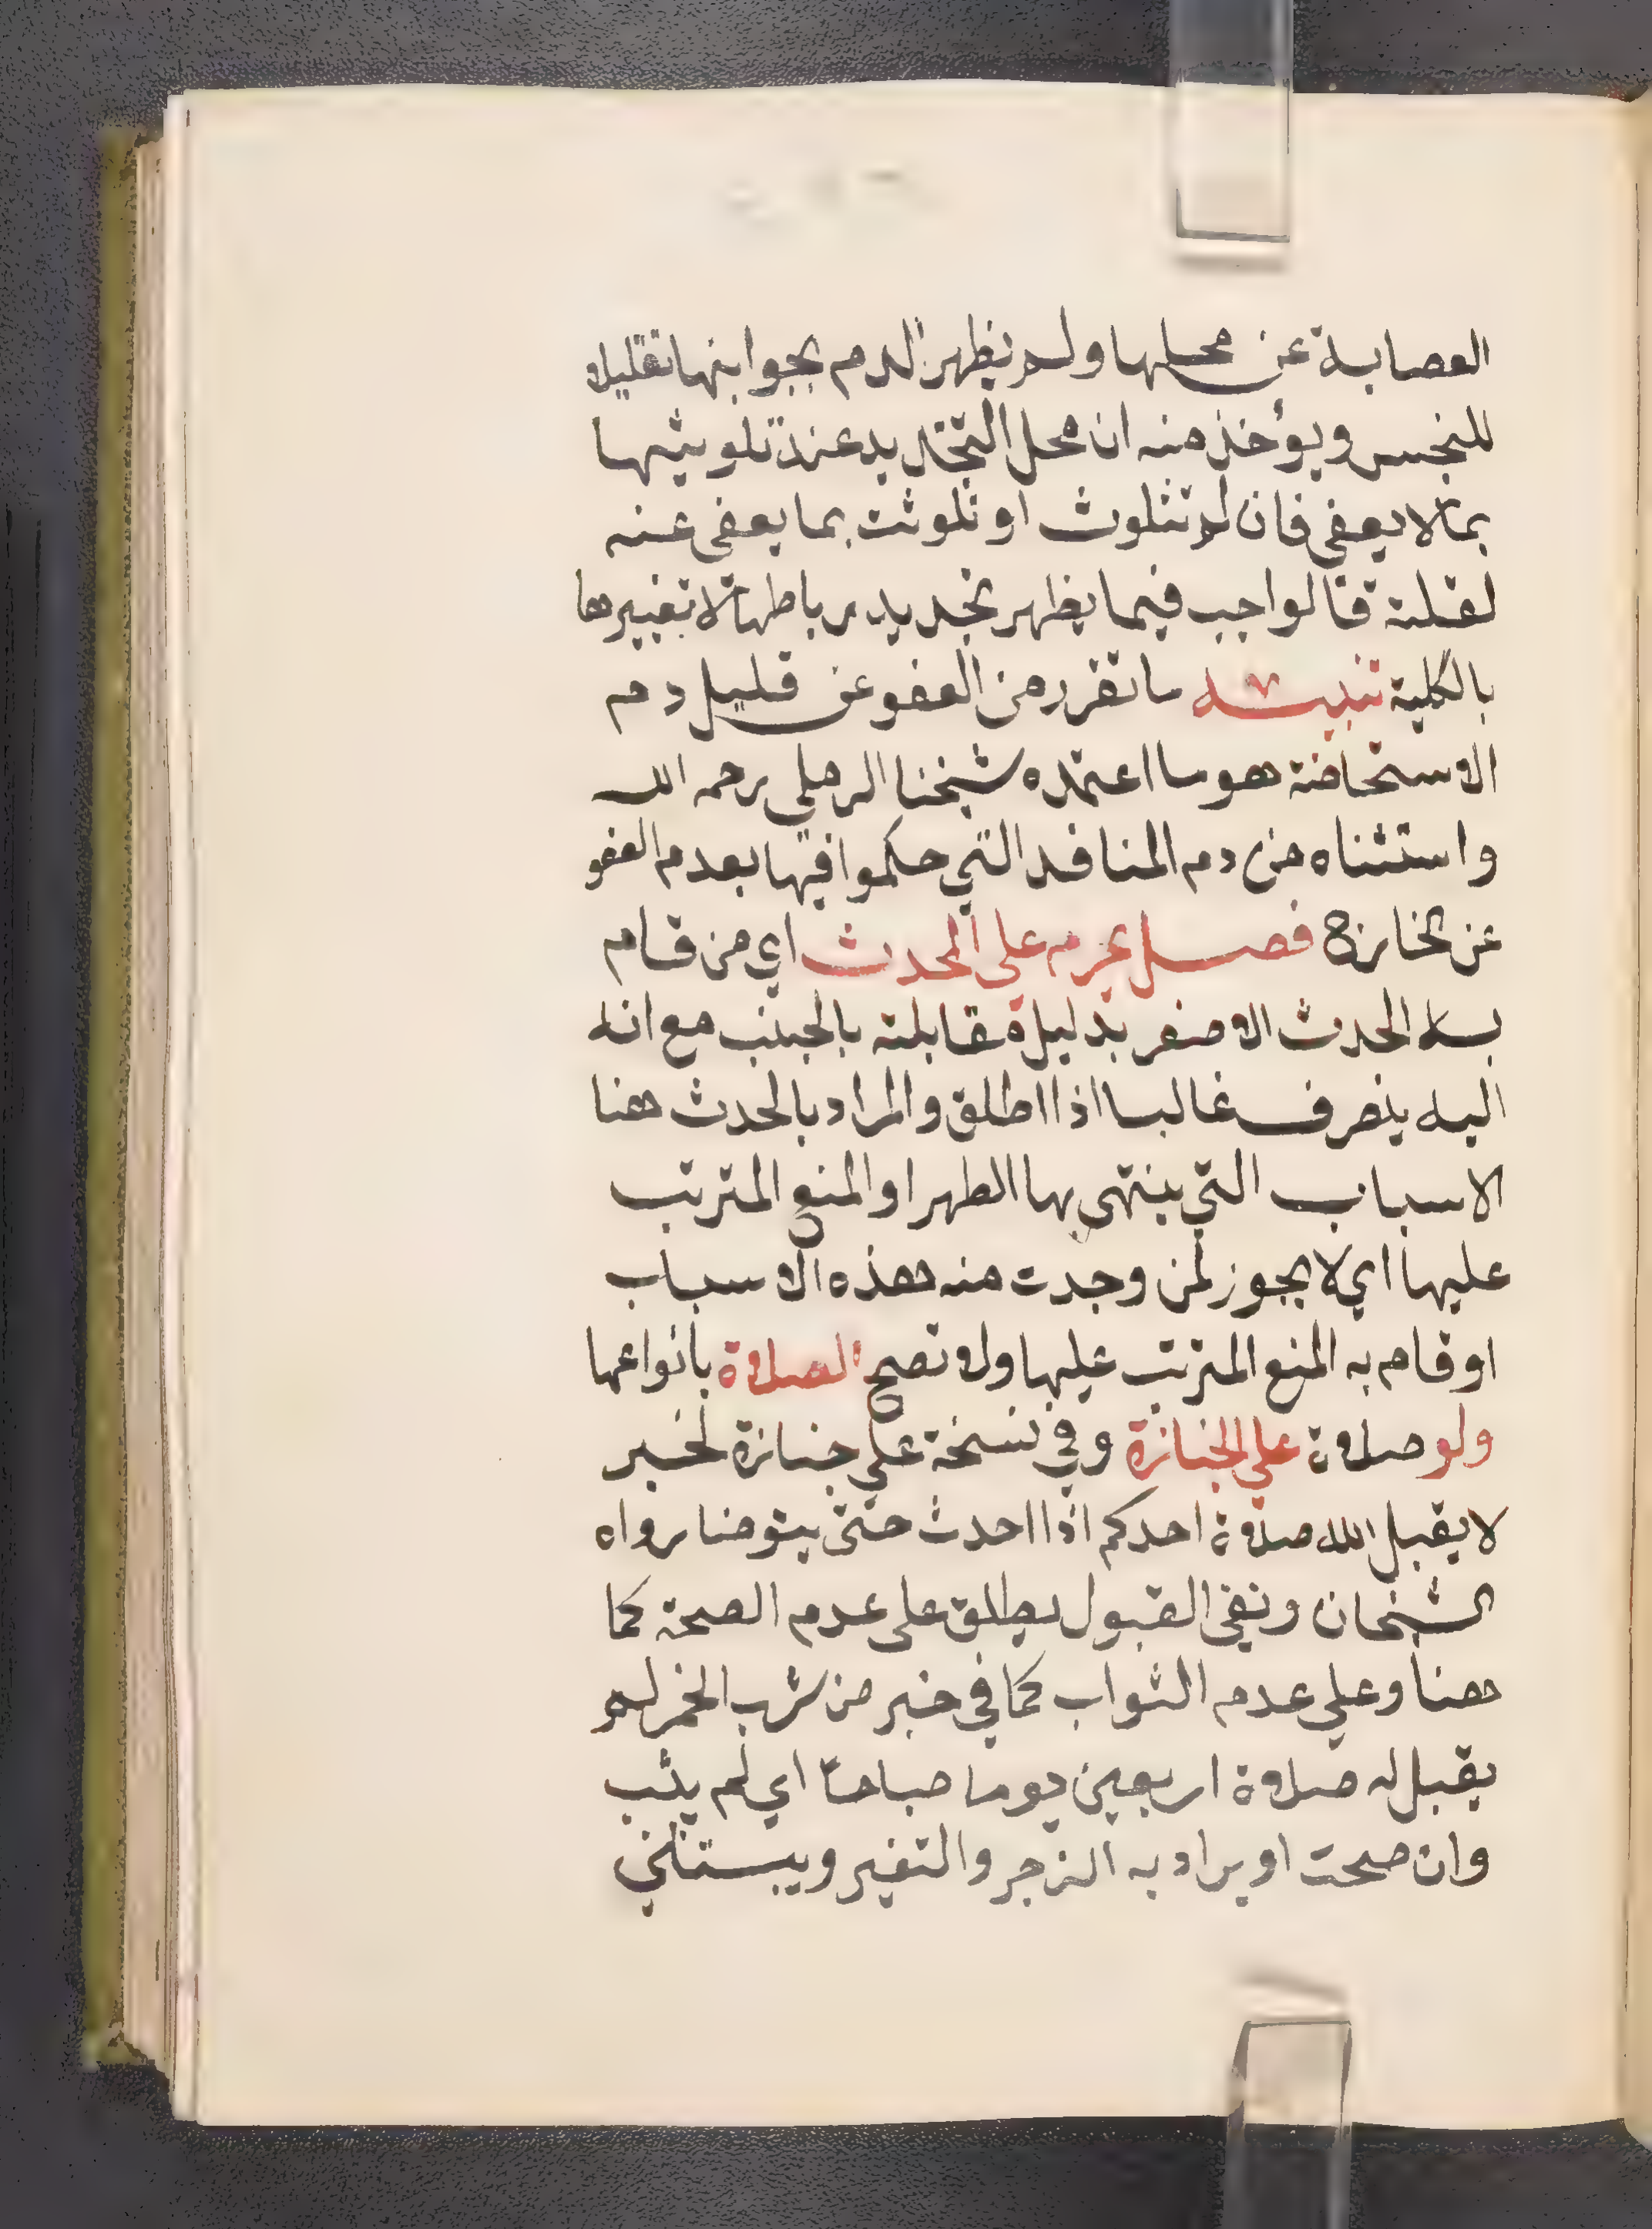 العصابة عن محلها ولم يظهر الدم بجوانبها تقليلا
للنجس ويؤخذ منه ان محل التجديد عند تلويثها
بما لا يعفى فان لم تتلوث او تلوثت بما يعفى عنه
لقلته فالواجب فيما يظهر تجديد رباطها لا تغييرها
بالكلية تنبيه ما تقرر من العفو عن قليل دم
الاستحاضة هو ما اعتمده شيخنا الرملي رحمه الله
واستثناه من دم المنافد التي حكموا فيها بعدم العفو
عن الخارج فصل يحرم على المحدث اي من قام
به الحدث الاصغر بدليل مقابلته بالجنب مع انه
اليه ينصرف غالبا اذا اطلق والمراد بالحدث هنا
الاسباب التي ينتهي بها الطهر او المنع المترتب
عليها اي لا يجوز لمن وجدت منه هذه الاسباب
او قام به المنع المترتب عليها ولا تصح الصلاة بانواعها
ولو صلاة على الجنازة وفي نسخة على جنازة لخبر
لا يقبل الله صلاة احدكم اذا احدث حتى يتوضا رواه
الشيخان ونفي القبول يطلق على عدم الصحة كما
هنا وعلى عدم الثواب كما في خبر من شرب الخمر لم
يقبل له صلاة اربعين يوما صباحا اي لم يثب
وان صحت او يراد به الزجر والتغير ويستثنى